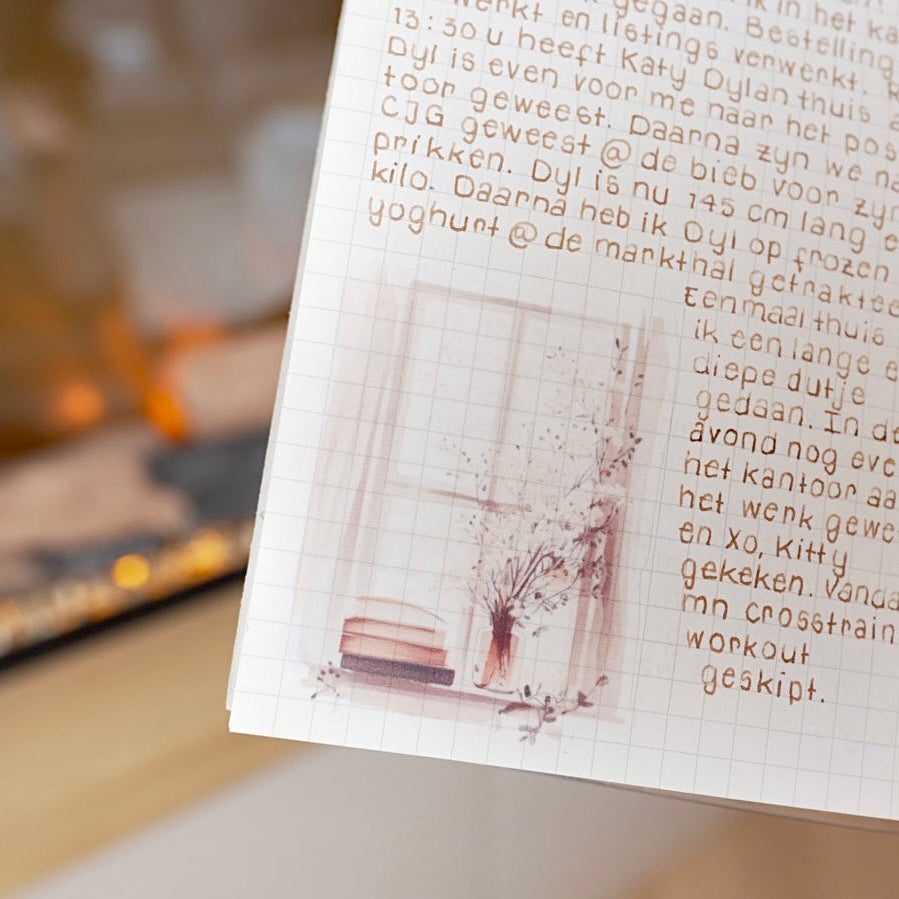 gegaan. ik in het
en listings verwerkt. Bestelling
13:30 u heeft Katy Dylan thuis
Dyl is even voor me naar het
toor geweest. Daarna zyn we
CJG geweest @ de bieb voor
prikken. Dyl is nu 145 cm lang
kilo. Daarna heb ik Dyl op frozen
yoghurt @ de markthal
Eenmaal thuis
ik een lange
diepe dutje
gedaan. In
avond nog
het kantoor
het werk
en xo, Kitty
gekeken.
mn
workout
geskipt.